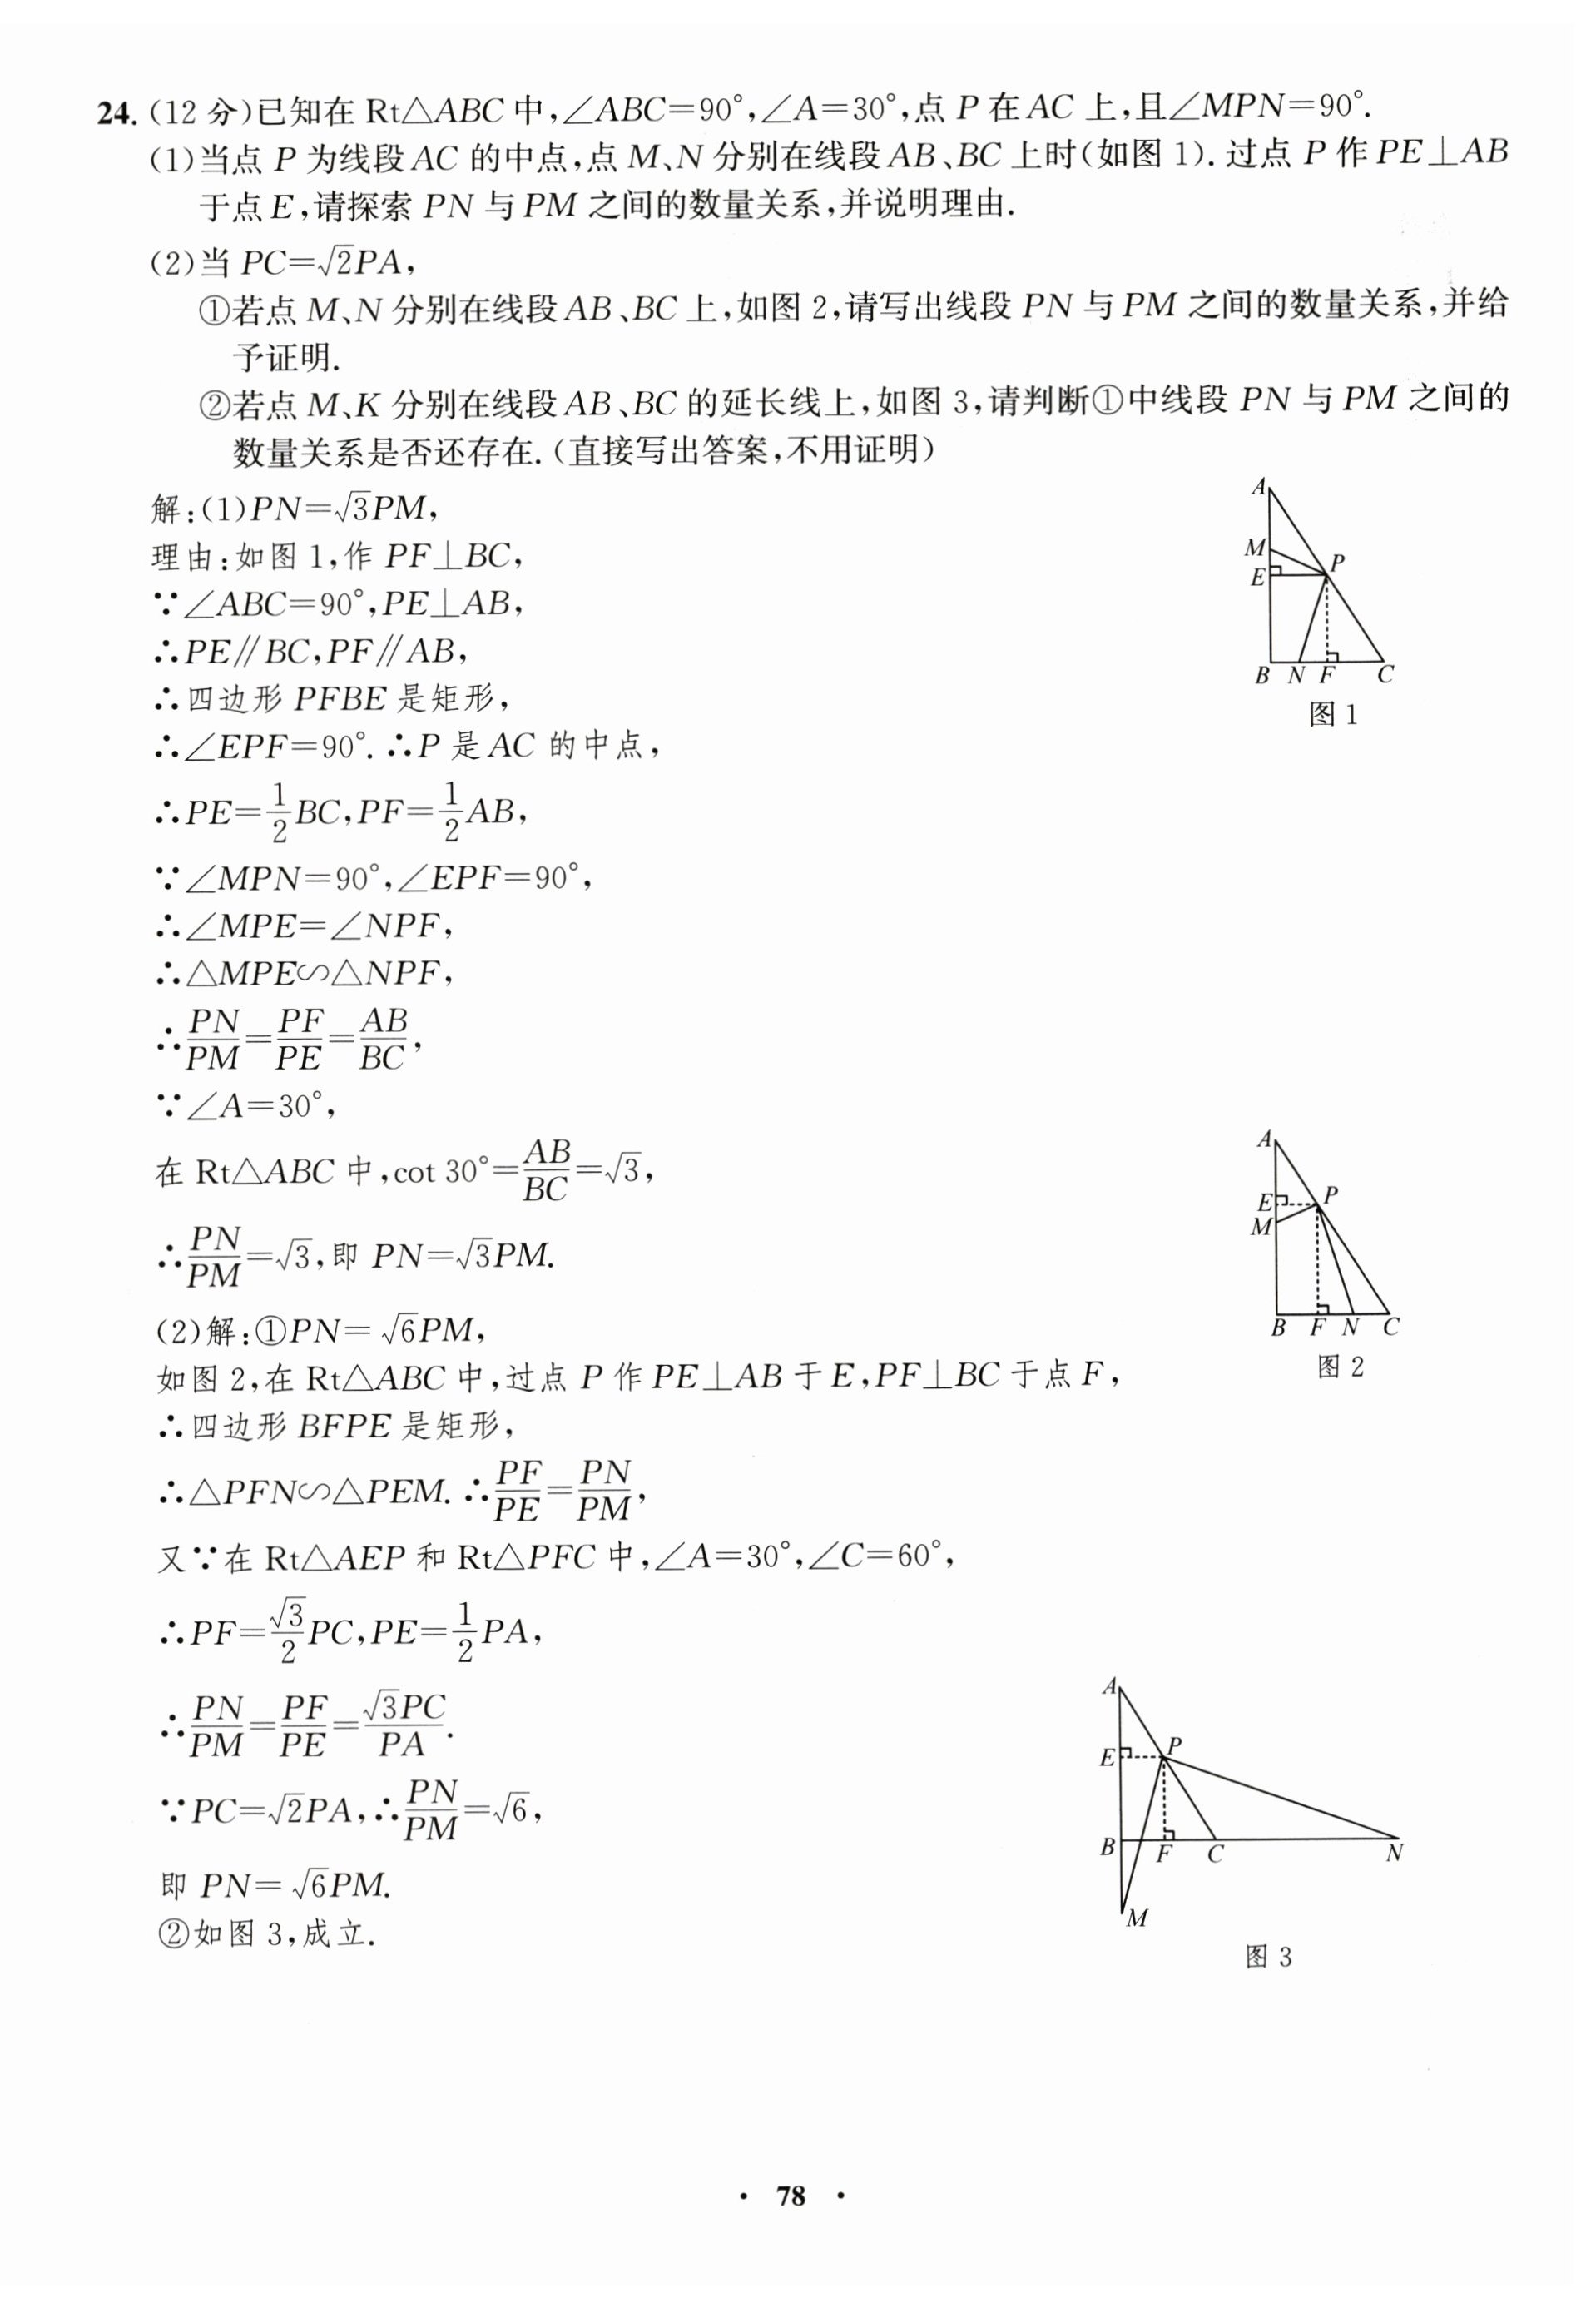 24.(12 分)已知在 Rt△ABC 中,∠ABC=90°,∠A=30°,点 P 在 AC 上,且∠MPN=90°.
(1)当点 P 为线段 AC 的中点,点 M、N 分别在线段 AB、BC 上时(如图 1).过点 P 作 PE⊥AB
于点 E,请探索 PN 与 PM 之间的数量关系,并说明理由.
(2)当 PC=√2PA,
①若点 M、N 分别在线段 AB、BC 上,如图 2,请写出线段 PN 与 PM 之间的数量关系,并给
予证明.
②若点 M、K 分别在线段 AB、BC 的延长线上,如图 3,请判断①中线段 PN 与 PM 之间的
数量关系是否还存在.(直接写出答案,不用证明)
解:(1)PN=√3PM,
理由:如图 1,作 PF⊥BC,
∵∠ABC=90°,PE⊥AB,
∴PE∥BC,PF∥AB,
∴四边形 PFBE 是矩形,
∴∠EPF=90°.∴P 是 AC 的中点,
∴PE=1/2BC,PF=1/2AB,
∵∠MPN=90°,∠EPF=90°,
∴∠MPE=∠NPF,
∴△MPE∽△NPF,
∴PN/PM=PF/PE=AB/BC,
∵∠A=30°,
在 Rt△ABC 中,cot 30°=AB/BC=√3,
∴PN/PM=√3,即 PN=√3PM.
A
M
E
P
B N F C
图 1
(2)解:①PN=√6PM,
如图 2,在 Rt△ABC 中,过点 P 作 PE⊥AB 于 E,PF⊥BC 于点 F,
∴四边形 BFPE 是矩形,
∴△PFN∽△PEM.∴PF/PE=PN/PM,
又∵在 Rt△AEP 和 Rt△PFC 中,∠A=30°,∠C=60°,
∴PF=√3/2PC,PE=1/2PA,
∴PN/PM=PF/PE=√3PC/PA.
∵PC=√2PA,∴PN/PM=√6,
即 PN=√6PM.
②如图 3,成立.
A
E
P
M
B F N C
图 2
A
E
P
B F C N
M
图 3
· 78 ·